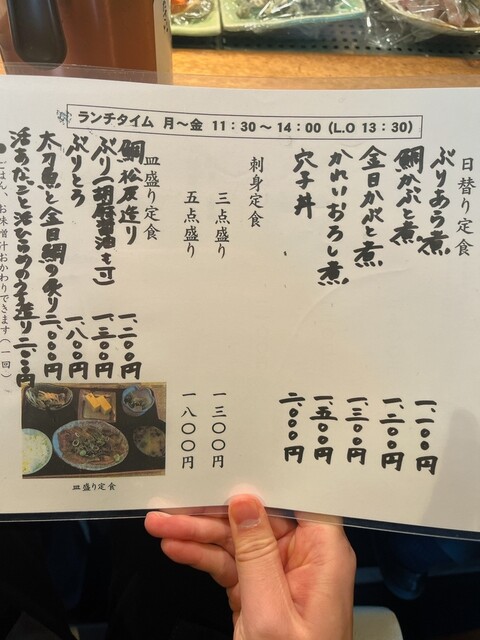 ランチタイム 月～金 11：30～14：00（L.O 13：30）
日替り定食
ぶりあら煮 一、一〇〇円
鯛かぶと煮 一、二〇〇円
金目かぶと煮 一、三〇〇円
かれいおろし煮 一、五〇〇円
穴子丼 二、〇〇〇円
刺身定食
三点盛り 一三〇〇円
五点盛り 一八〇〇円
皿盛り定食
鯛松皮造り 一、二〇〇円
ぶり（胡麻醤油も可） 一、三〇〇円
ぶりとろ 一、八〇〇円
太刀魚と金目鯛の炙り 二、〇〇〇円
活あなごと活ひらめのウス造り 二、〇〇〇円
ごはん、お味噌汁おかわりできます（一回）
皿盛り定食